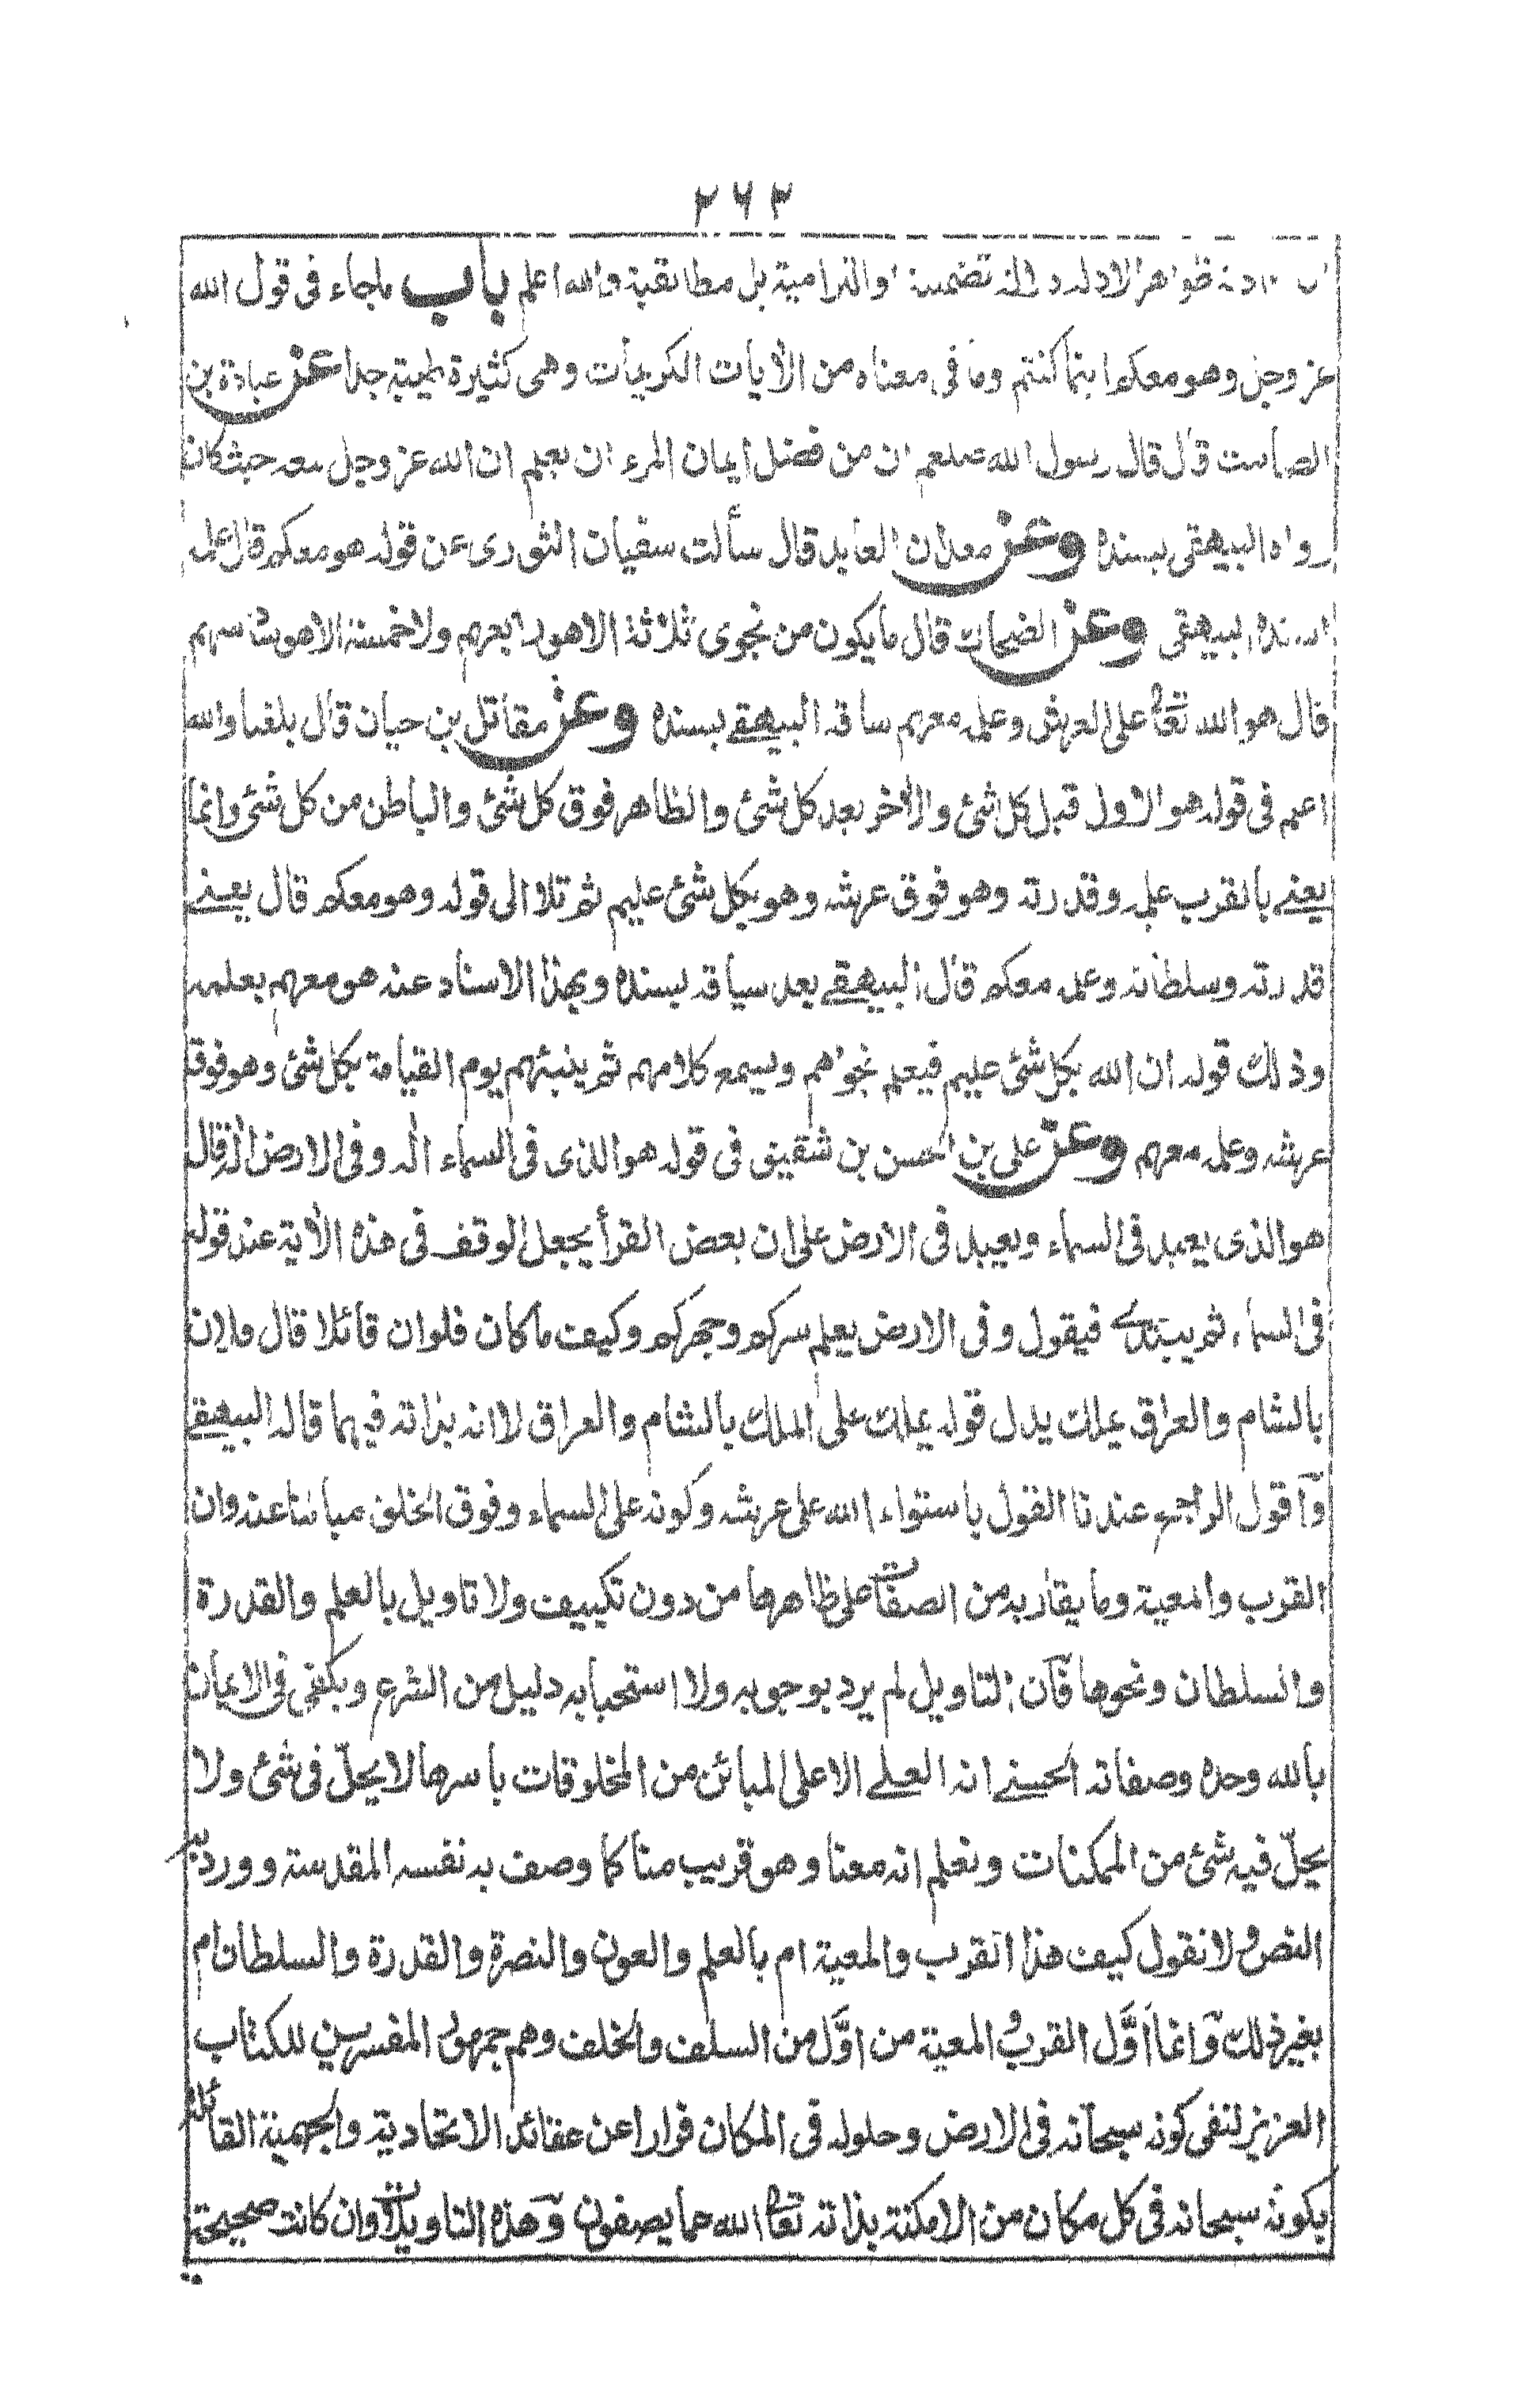 ٢٦٢
ظواهر الادلة تضمنية والتزامية بل مطابقية والله اعلم باب ماجاء فى قول الله
عز وجل وهو معكم اينما كنتم وما فى معناه من الاٰيات الكريمات وهى كثيرة طيبة جدا عن عبادة بن
الصامت قال قال رسول الله صلعم ان من فضل ايمان المرء ان يعلم ان الله عز وجل معه حيث كان
رواه البيهقى بسنده وعن معدان العابد قال سألت سفيان الثورى عن قوله هو معكم قال علمه
اسنده البيهقى وعن الضحاك قال مايكون من نجوى ثلاثة الا هو رابعهم ولا خمسة الا هو سادسهم
قال هو الله تعالى على العرش وعلمه معهم ساقه البيهقے بسنده وعن مقاتل بن حيان قال بلغنا والله
اعلم فى قوله هو الاول قبل كل شئ والاٰخر بعد كل شئ والظاهر فوق كل شئ والباطن من كل شئ وانما
يعنے بالقرب علمه وقدرته وهو فوق عرشه وهو بكل شئ عليم ثم تلا الى قوله وهو معكم قال يعنے
قدرته وسلطانه وعلمه معكم قال البيهقے بعد سياقه بسنده وبهذا الاسناد عنه هو معهم بعلمه
وذلك قوله ان الله بكل شئ عليم فيعلم نجواهم ويسمع كلامهم ثم ينبئهم يوم القيامة بكل شئ وهو فوق
عرشه وعلمه معهم وعن على بن الحسن بن شقيق فى قوله هو الذى فى السماء الٰه وفى الارض الٰه قال
هو الذى يعبد فى السماء ويعبد فى الارض على ان بعض القرأ يجعل الوقف فى هذه الاٰية عند قوله
فى السماء ثم يبتدئ فيقول وفى الارض يعلم سركم وجهركم وكيف ماكان فلو ان قائلا قال فلان
بالشام والعراق يملك يدل قوله يملك على الملك بالشام والعراق لا انه بذاته فيهما قاله البيهقے
وآقول الراجح عندنا القول باستواء الله على عرشه وكونه على السماء وفوق الخلق مبائنا عنه وان
القرب والمعية وما يقاربه من الصفات على ظاهرها من دون تكييف ولا تاويل بالعلم والقدرة
والسلطان ونحوها فآن التاويل لم يرد بوجوبه ولا استحبابه دليل من الشرع ويكفى فى الايمان
بالله وحده وصفاته الحسنے انه العلے الاعلى المبائن من المخلوقات باسرها لا يحلّ فى شئ ولا
يحلّ فيه شئ من الممكنات ونعلم انه معنا وهو قريب منا كما وصف به نفسه المقدسة وورد به
النص ولا نقول كيف هذا القرب والمعية ام بالعلم والعون والنصرة والقدرة والسلطان ام
بغير ذلك وآنما اوّل القرب والمعية من اوّل من السلف والخلف وهم جمهور المفسرين للكتاب
العزيز لنفى كونه سبحانه فى الارض وحلوله فى المكان فرارا عن عقائد الاتحادية والجهمية القائلة
بكونه سبحانه فى كل مكان من الامكنة بذاته تعالى الله عما يصفون وهٓذه التاويلات وان كانت صحيحة